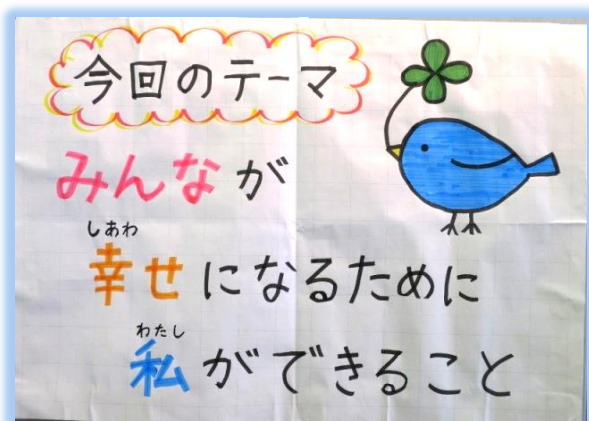 今回のテーマ
みんなが
しあわ
幸せになるために
わたし
私ができること